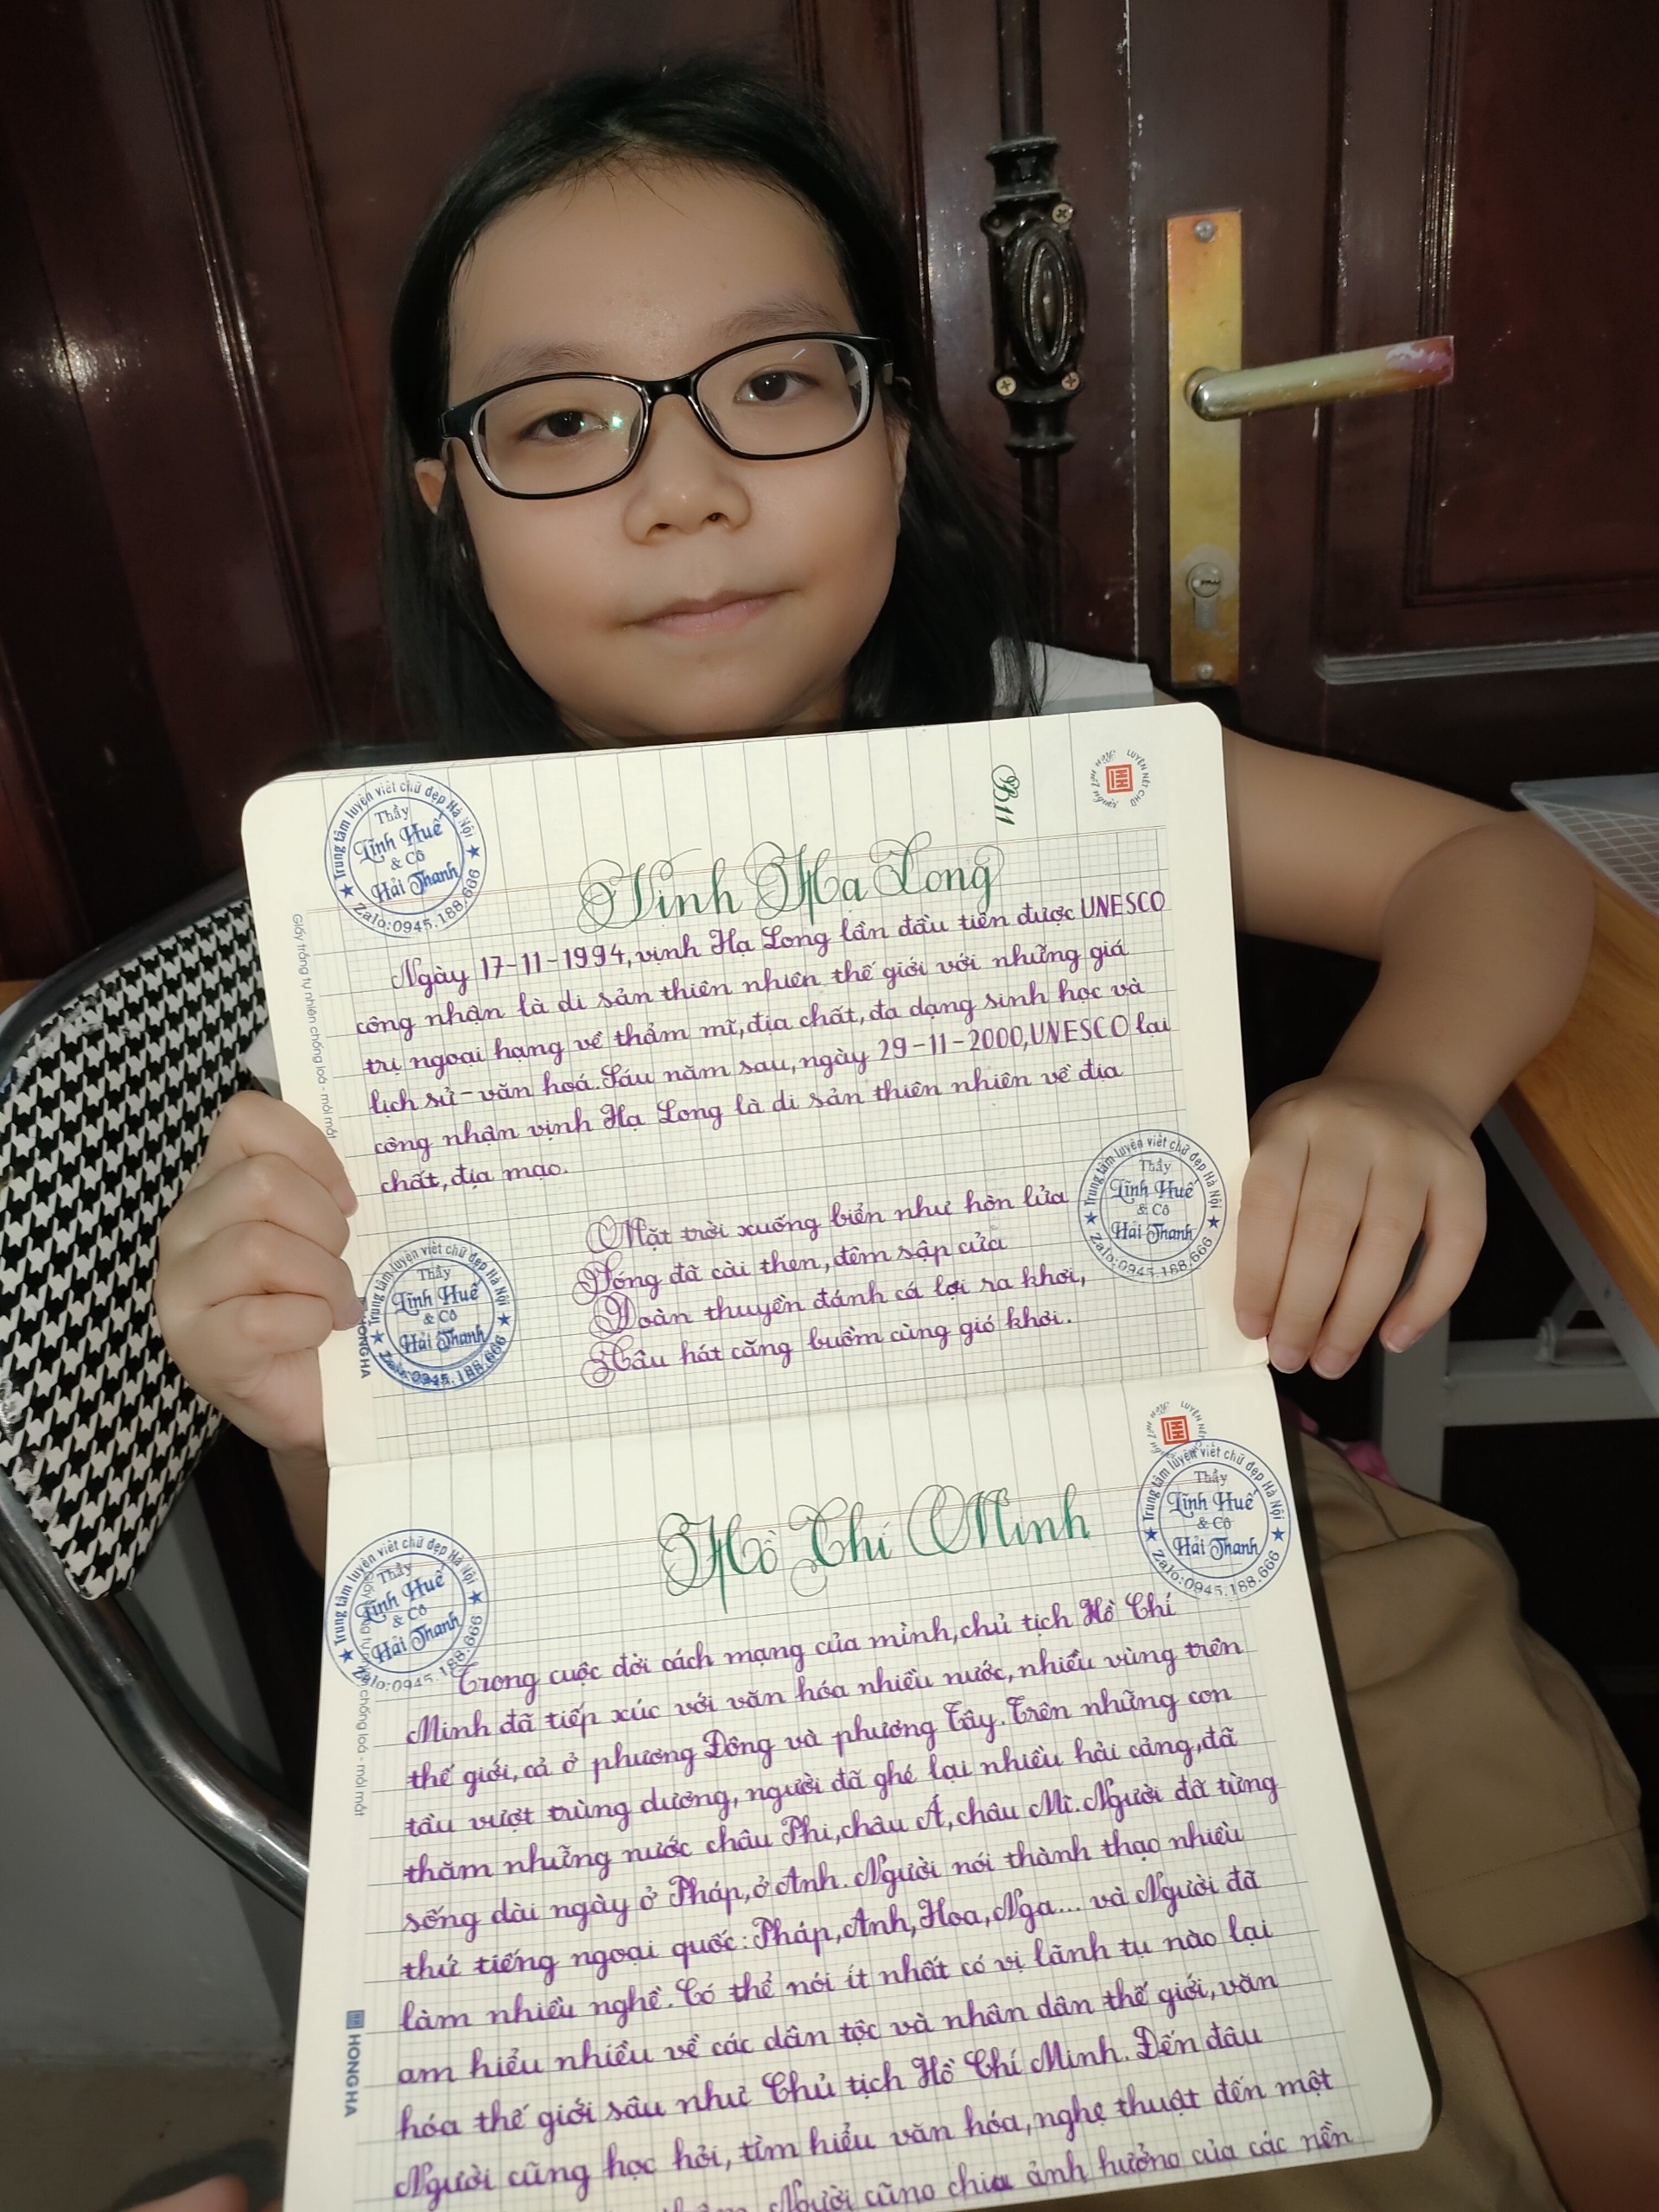 B11
LUYỆN NÉT CHỮ
Trung tâm luyện viết chữ đẹp Hà Nội
Thầy
Lĩnh Huế
& Cô
Hải Thanh
Zalo:0945.188.666
Giấy trắng tự nhiên chống loá - mỏi mắt
Vịnh Hạ Long
Ngày 17-11-1994, vịnh Hạ Long lần đầu tiên được UNESCO
công nhận là di sản thiên nhiên thế giới với những giá
trị ngoại hạng về thẩm mĩ, địa chất, đa dạng sinh học và
lịch sử - văn hoá. Sáu năm sau, ngày 29-11-2000, UNESCO lại
công nhận vịnh Hạ Long là di sản thiên nhiên về địa
chất, địa mạo.
Mặt trời xuống biển như hòn lửa
Sóng đã cài then, đêm sập cửa
Đoàn thuyền đánh cá lại ra khơi,
Câu hát căng buồm cùng gió khơi.
Trung tâm luyện viết chữ đẹp Hà Nội
Thầy
Lĩnh Huế
& Cô
Hải Thanh
Zalo:0945.188.666
Trung tâm luyện viết chữ đẹp Hà Nội
Thầy
Lĩnh Huế
& Cô
Hải Thanh
Zalo:0945.188.666
HONG HA
Trung tâm luyện viết chữ đẹp Hà Nội
Thầy
Lĩnh Huế
& Cô
Hải Thanh
Zalo:0945.188.666
Trung tâm luyện viết chữ đẹp Hà Nội
Thầy
Lĩnh Huế
& Cô
Hải Thanh
Zalo:0945.188.666
chống loá - mỏi mắt
Hồ Chí Minh
Trong cuộc đời cách mạng của mình, chủ tịch Hồ Chí
Minh đã tiếp xúc với văn hóa nhiều nước, nhiều vùng trên
thế giới, cả ở phương Đông và phương Tây. Trên những con
tầu vượt trùng dương, người đã ghé lại nhiều hải cảng, đã
thăm những nước châu Phi, châu Á, châu Mĩ. Người đã từng
sống dài ngày ở Pháp, ở Anh. Người nói thành thạo nhiều
thứ tiếng ngoại quốc: Pháp, Anh, Hoa, Nga... và Người đã
làm nhiều nghề. Có thể nói ít nhất có vị lãnh tụ nào lại
am hiểu nhiều về các dân tộc và nhân dân thế giới, văn
hóa thế giới sâu như Chủ tịch Hồ Chí Minh. Đến đâu
Người cũng học hỏi, tìm hiểu văn hóa, nghệ thuật đến một
Người cũng chịu ảnh hưởng của các nền
HONG HA